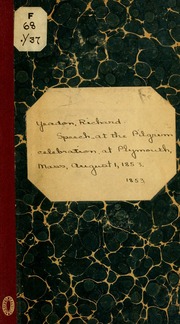 F
68
.Y37
Yeadon, Richard
Speech, at the Pilgrim
celebration at Plymouth,
Mass, August 1, 1853.
1853